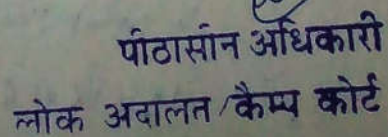 पीठासीन अधिकारी
लोक अदालत/कैम्प कोर्ट